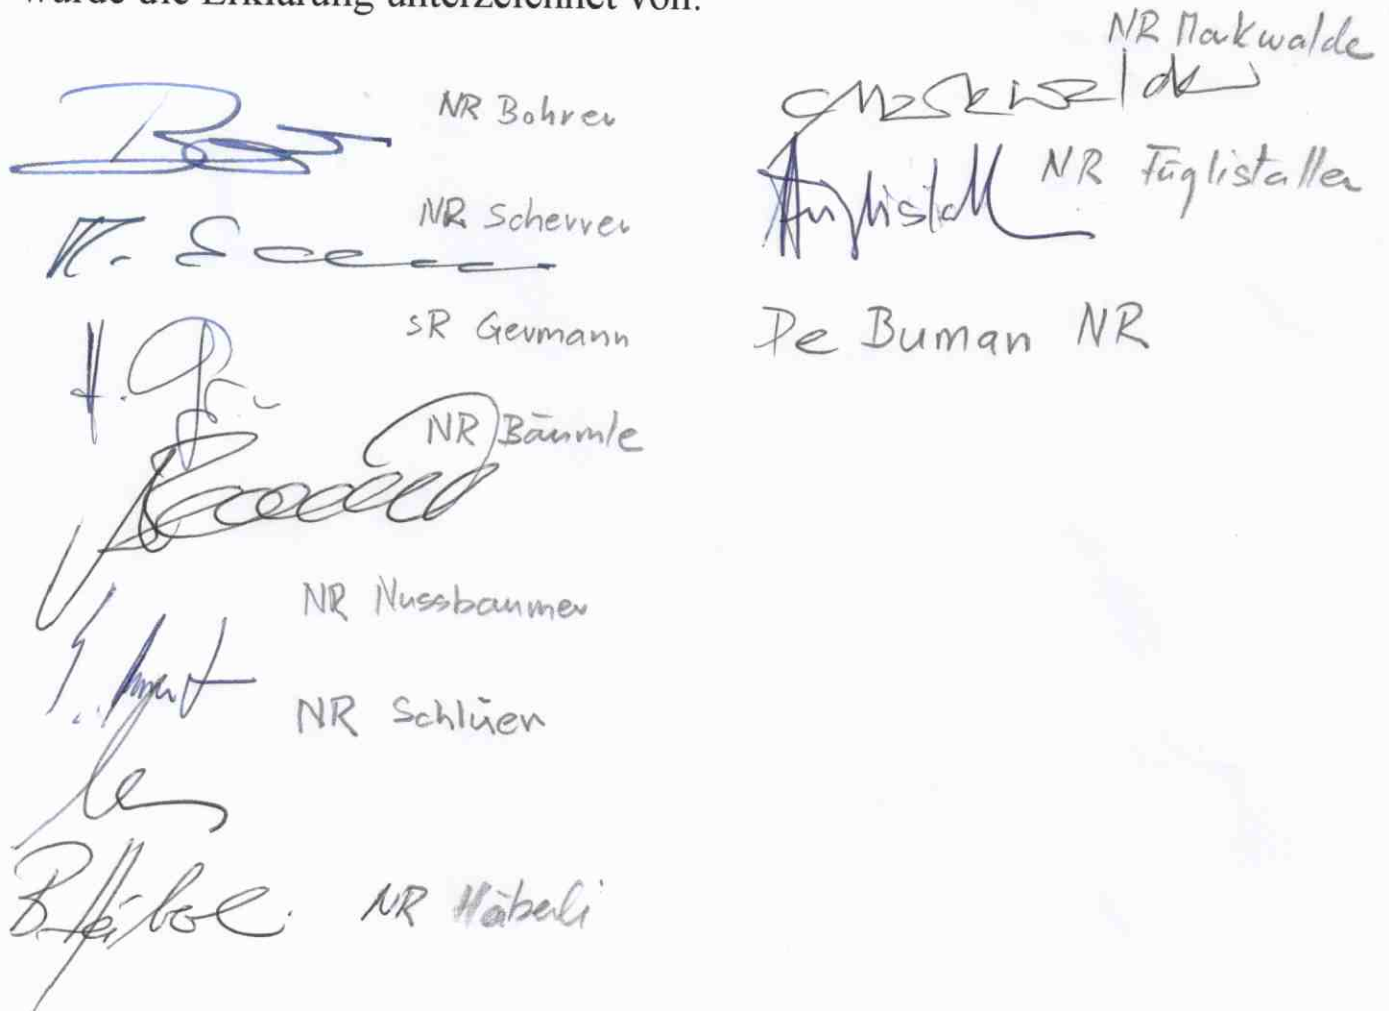 wurde die Erklärung unterzeichnet von:
NR Bohrer
NR Scherrer
SR Germann
NR Bäumle
NR Nussbaumer
NR Schlüer
B. Häberli NR Häberli
NR Markwalde
Markwalder
Füglistall NR Füglistaller
De Buman NR